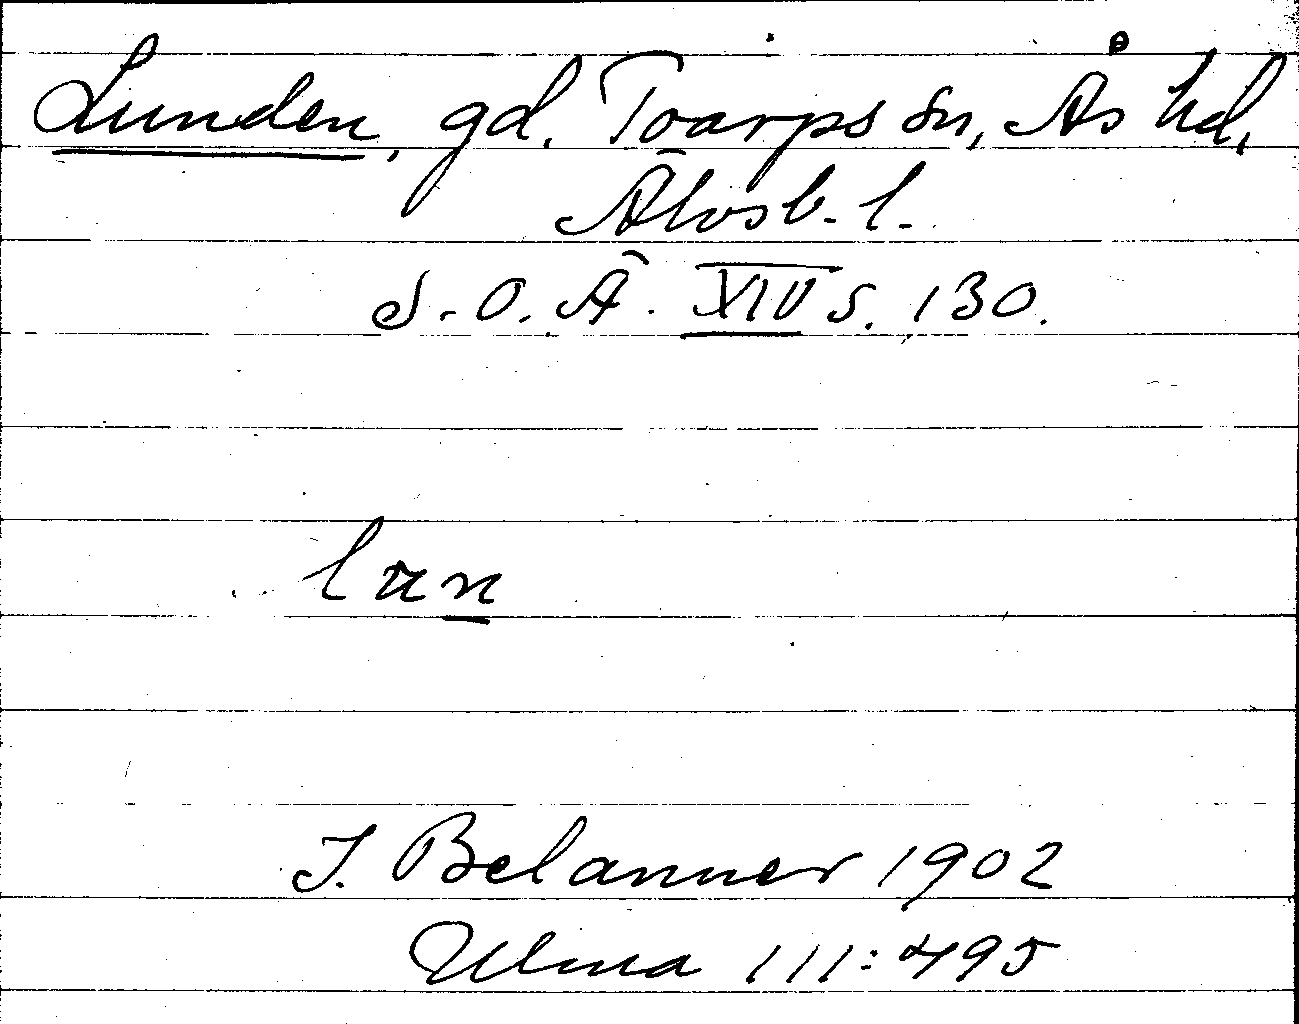 Lunden, gd. Toarps sn, Ås hd,
Älvsb. l.
S. O. Ä. XIV s. 130.
J. Belanner 1902
Ulma 111:495